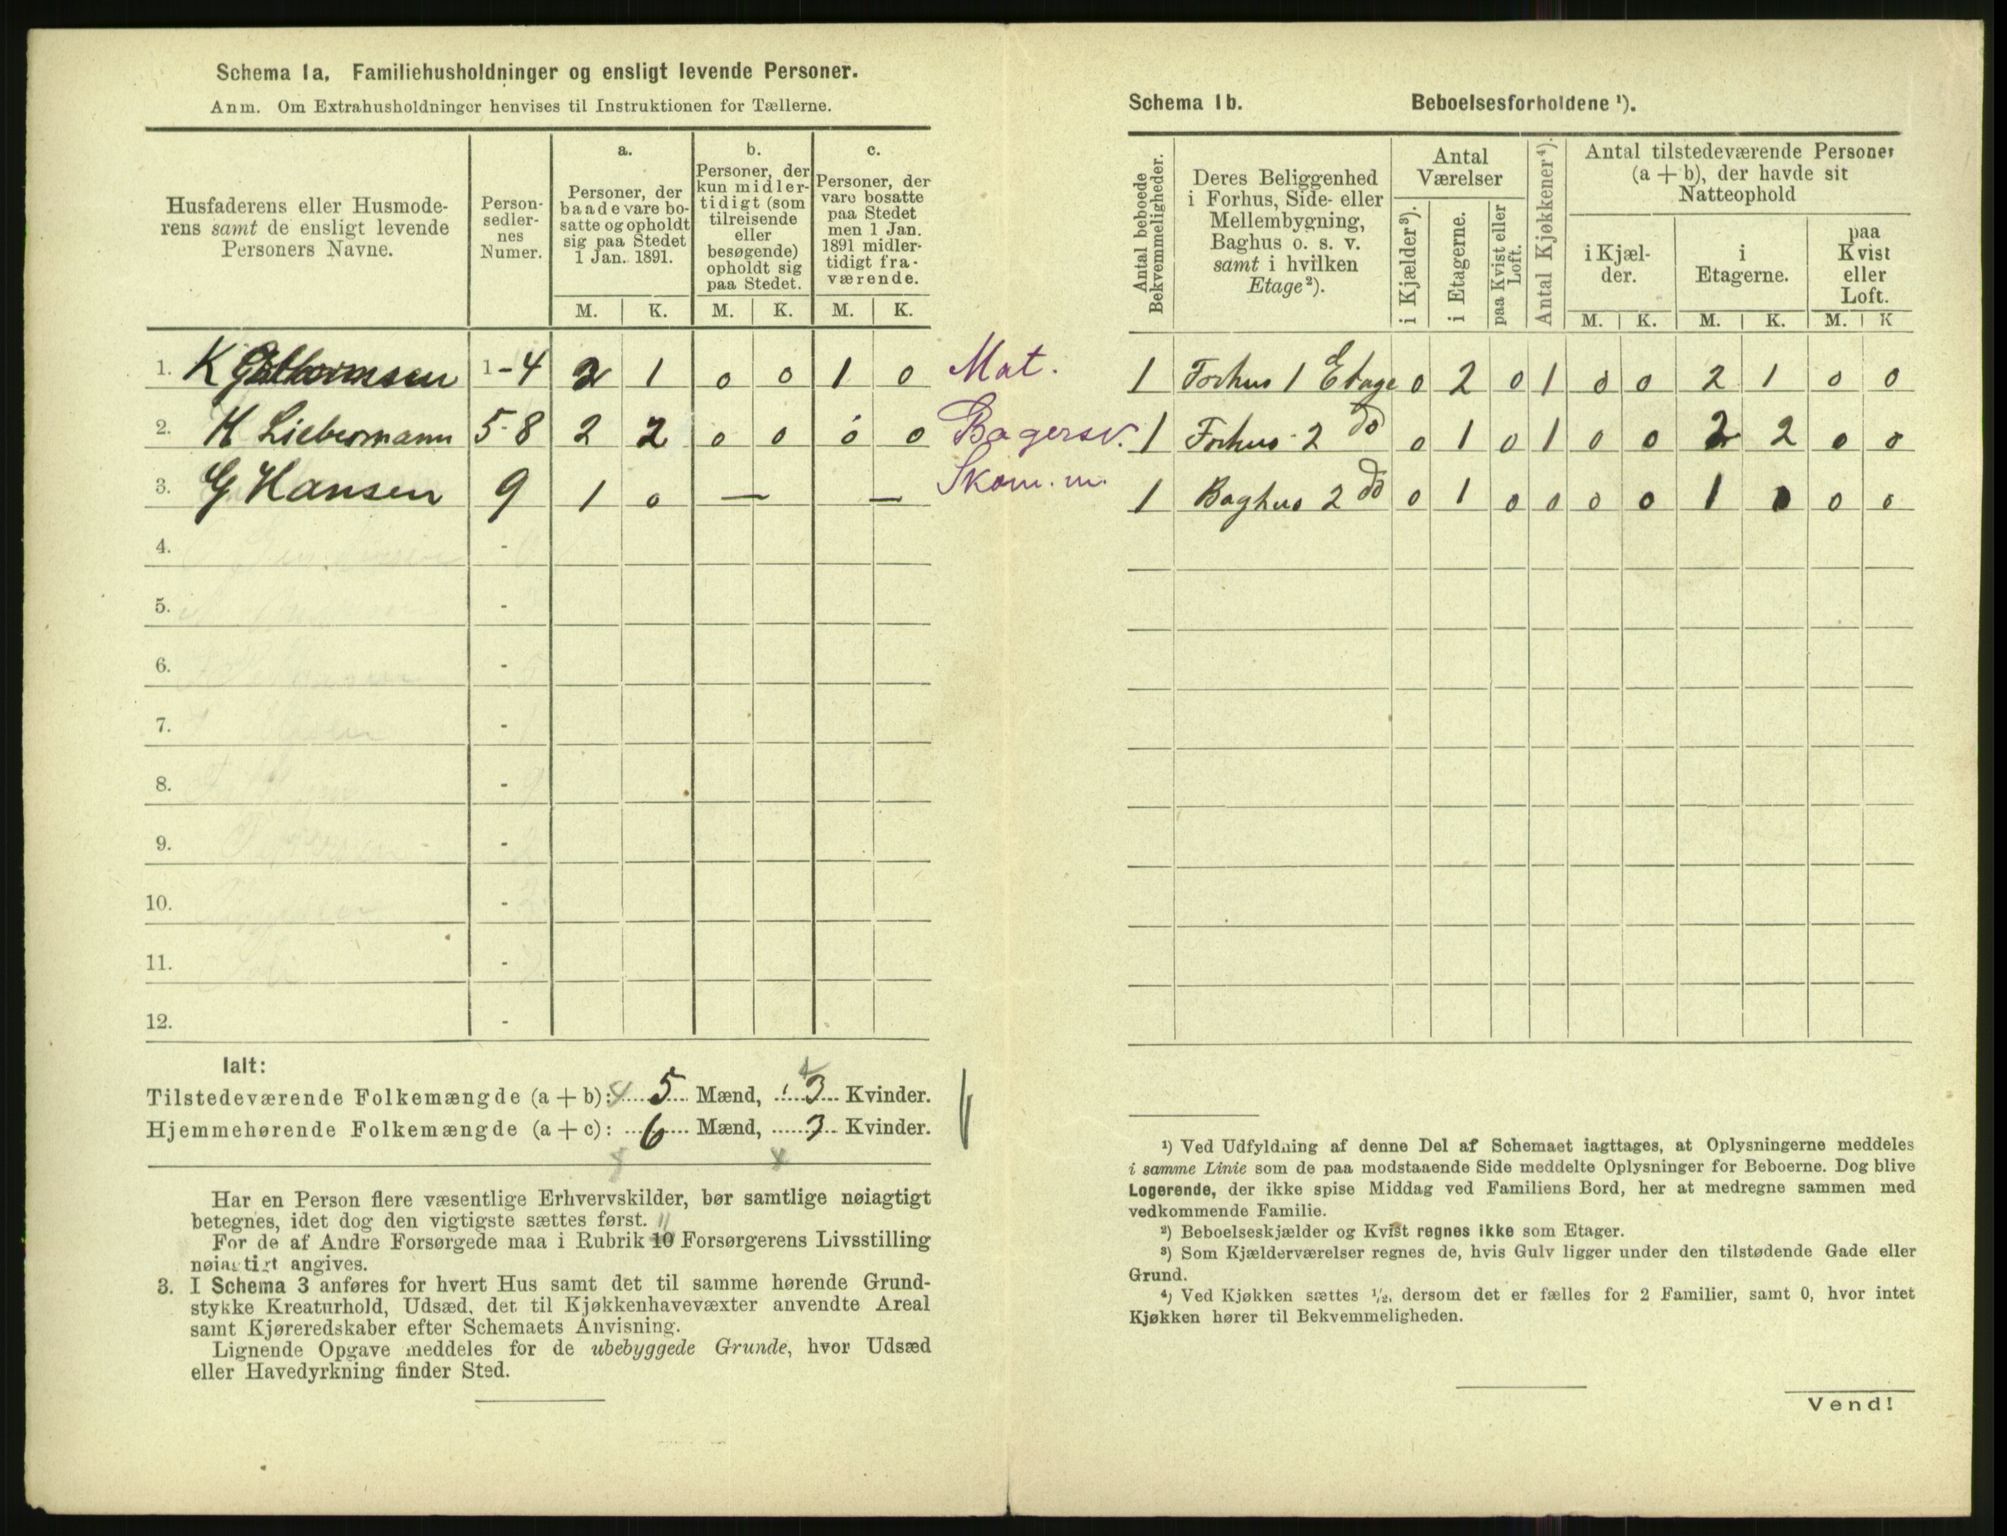 Schema 1a. Familiehusholdninger og ensligt levende Personer.
Anm. Om Extrahusholdninger henvises til Instruktionen for Tællerne.
Husfaderens eller Husmode-
rens samt de ensligt levende
Personers Navne.
Person-
sedler-
nes
Numer.
a.
Personer, der
baade vare bo-
satte og opholdt
sig paa Stedet
1 Jan. 1891.
b.
Personer, der
kun midler-
tidigt (som
tilreisende
eller
besøgende)
opholdt sig
paa Stedet.
c.
Personer, der
vare bosatte
paa Stedet
men 1 Jan.
1891 midler-
tidigt fra-
værende.
M. K. M. K. M. K.
1. K 1-4 2 1 0 0 1 0 Mat.
2. H Liebermann 5-8 2 2 0 0 0 0 Bagersv.
3. G Hansen 9 1 0 — — Skom. m.
4. -
5. -
6. -
7. -
8. -
9. -
10. -
11. -
12. -
Ialt:
Tilstedeværende Folkemængde (a + b): 5 Mænd, 3 Kvinder.
Hjemmehørende Folkemængde (a + c): 6 Mænd, 3 Kvinder.
Har en Person flere væsentlige Erhvervskilder, bør samtlige nøiagtigt
betegnes, idet dog den vigtigste sættes først.
11
For de af Andre Forsørgede maa i Rubrik 10 Forsørgerens Livsstilling
nøiagtigt angives.
3. I Schema 3 anføres for hvert Hus samt det til samme hørende Grund-
stykke Kreaturhold, Udsæd, det til Kjøkkenhavevæxter anvendte Areal
samt Kjøreredskaber efter Schemaets Anvisning.
Lignende Opgave meddeles for de ubebyggede Grunde, hvor Udsæd
eller Havedyrkning finder Sted.
Schema 1b. Beboelsesforholdene ¹).
Antal beboede
Bekvemmeligheder.
Deres Beliggenhed
i Forhus, Side- eller
Mellembygning,
Baghus o. s. v.
samt i hvilken
Etage²).
Antal
Værelser
i Kjælder³).
i Etagerne.
paa Kvist eller
Loft.
Antal Kjøkkener⁴).
Antal tilstedeværende Personer
(a + b), der havde sit
Natteophold
i Kjæl-
der.
i
Etagerne.
paa
Kvist
eller
Loft.
M. K. M. K. M. K
1 Forhus 1 Etage 0 2 0 1 0 0 2 1 0 0
1 Forhus 2 do 0 1 0 1 0 0 2 2 0 0
1 Baghus 2 do 0 1 0 0 0 0 1 0 0 0
¹) Ved Udfyldning af denne Del af Schemaet iagttages, at Oplysningerne meddeles
i samme Linie som de paa modstaaende Side meddelte Oplysninger for Beboerne. Dog blive
Logerende, der ikke spise Middag ved Familiens Bord, her at medregne sammen med
vedkommende Familie.
²) Beboelseskjælder og Kvist regnes ikke som Etager.
³) Som Kjælderværelser regnes de, hvis Gulv ligger under den tilstødende Gade eller
Grund.
⁴) Ved Kjøkken sættes ½, dersom det er fælles for 2 Familier, samt 0, hvor intet
Kjøkken hører til Bekvemmeligheden.
Vend!